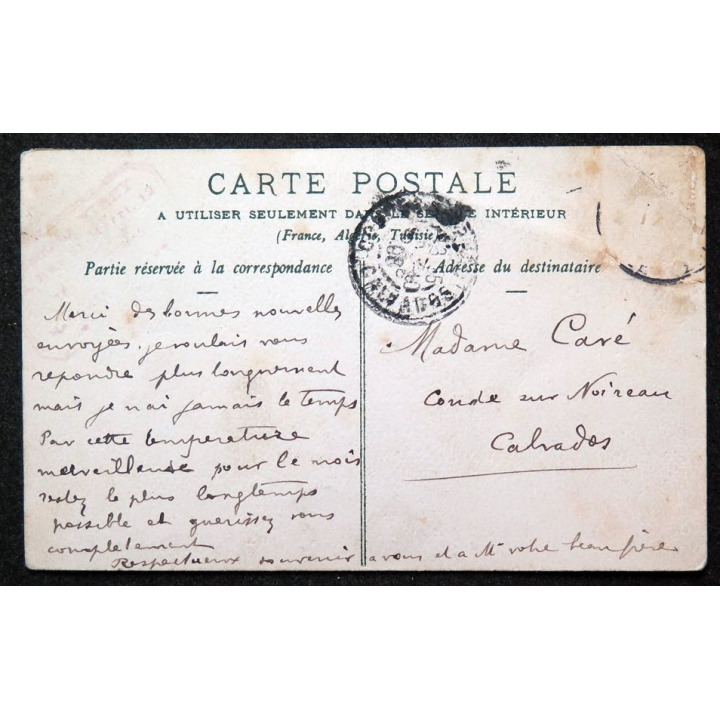 CARTE POSTALE
A UTILISER SEULEMENT DANS LE SERVICE INTÉRIEUR
(France, Algérie, Tunisie)
Partie réservée à la correspondance
Adresse du destinataire
Merci des bonnes nouvelles
envoyées. je voulais vous
repondre plus longuement
mais je n'ai jamais le temps
Par cette temperature
merveilleuse pour le mois
restez le plus longtemps
possible et guerissez vous
completement
Respectueux souvenir a vous et a Mr votre beau frère
Madame Cavé
Conde sur Noireau
Calvados
CALVADOS